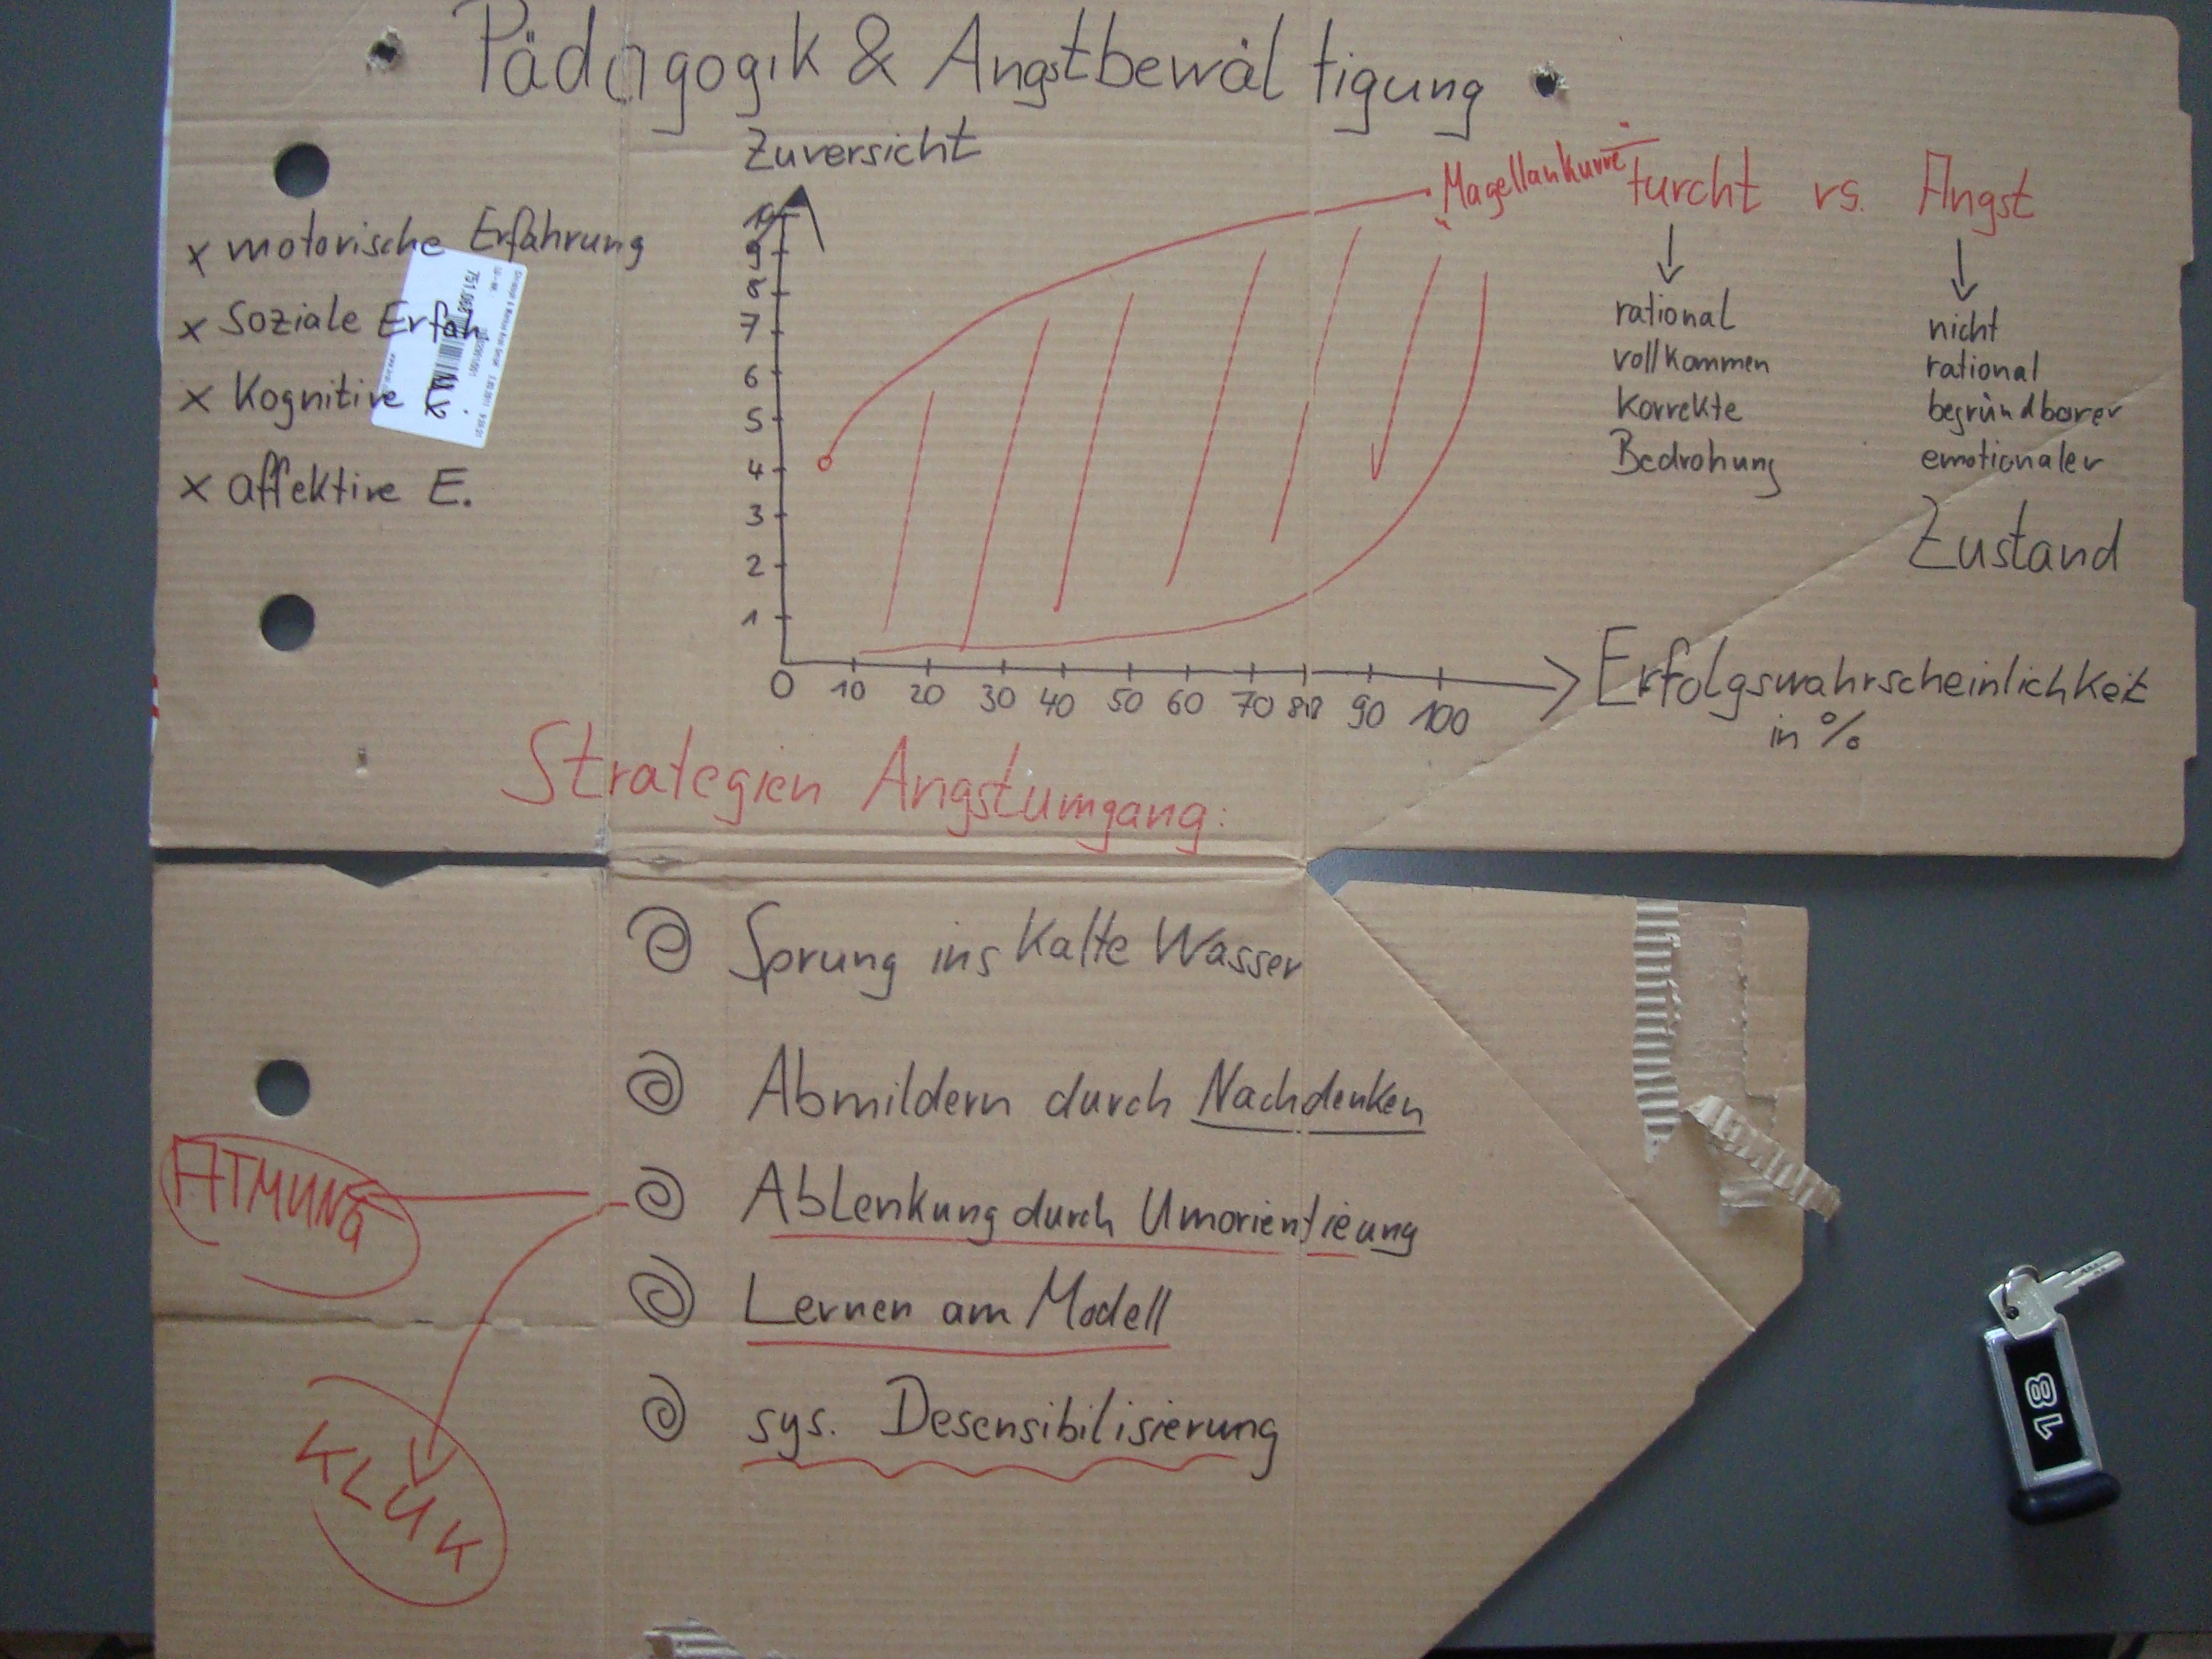 Pädagogik & Angstbewältigung
x motorische Erfahrung
x Soziale Erfah
x Kognitive
x affektive E.
Zuversicht
10
9
8
7
6
5
4
3
2
1
0 10 20 30 40 50 60 70 80 90 100
Erfolgswahrscheinlichkeit
in %
Magellankurve
Furcht vs. Angst
rational
vollkommen
korrekte
Bedrohung
nicht
rational
begründbarer
emotionaler
Zustand
Strategien Angstumgang:
Sprung ins Kalte Wasser
Abmildern durch Nachdenken
Ablenkung durch Umorientieung
Lernen am Modell
sys. Desensibilisierung
ATMUNG
KLÜK
18